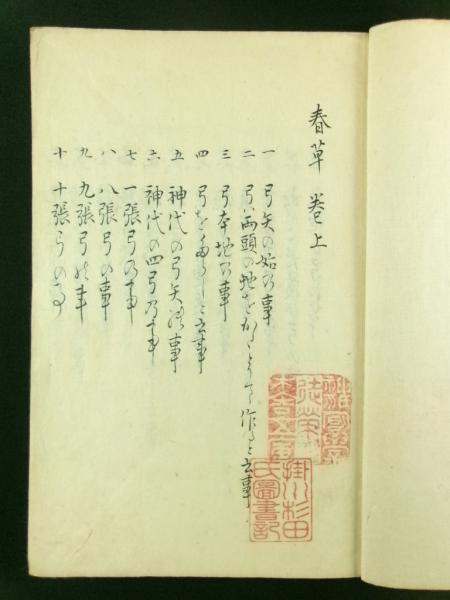 春草 巻上
一 弓矢の始の事
二 弓ハ両頭の蛇をかたとりて作ると云事
三 弓本地の事
四 弓を と云事
五 神代の弓矢の事
六 神代の四弓乃事
七 一張弓乃事
八 八張弓の事
九 九張弓の事
十 十張弓の事
掛川杉田
氏圖書記